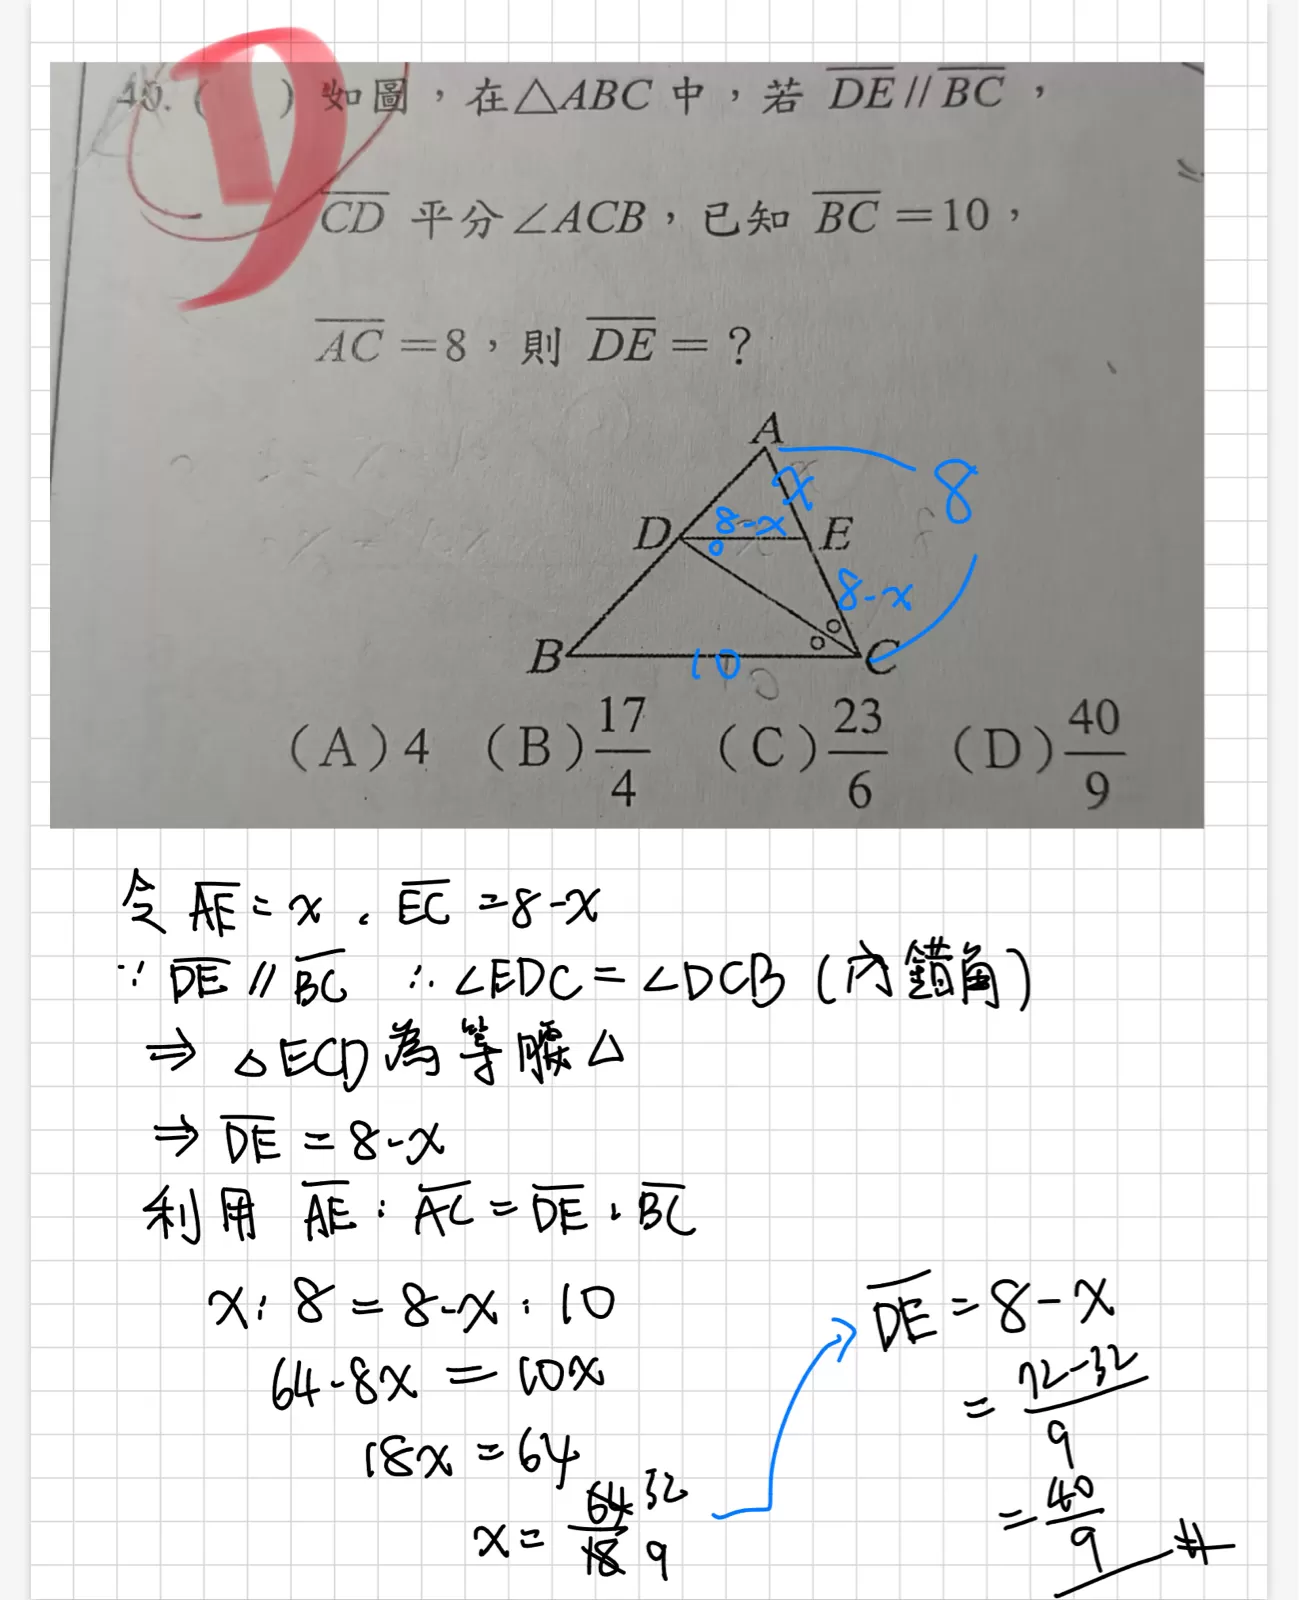 D
46. ( ) 如圖，在△ABC中，若 DE // BC，
CD 平分∠ACB，已知 BC＝10，
AC＝8，則 DE＝？
A
x
8
D
8-x
E
8-x
B
10
C
(A) 4 (B) 17/4 (C) 23/6 (D) 40/9
令 AE = x . EC = 8-x
∵ DE // BC ∴ ∠EDC = ∠DCB (內錯角)
⇒ △ECD為等腰△
⇒ DE = 8-x
利用 AE : AC = DE : BC
x : 8 = 8-x : 10
64-8x = 10x
18x = 64
x = 64/18 32/9
DE = 8-x
= 72-32/9
= 40/9 #